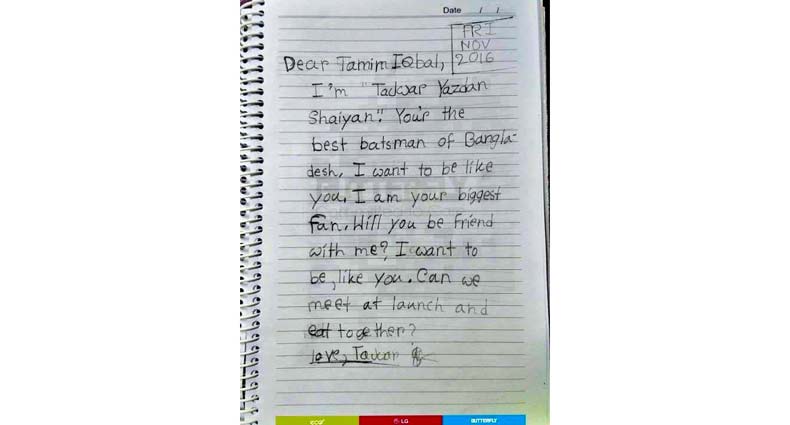 Date / /
FRI
NOV
2016
Dear Tamim IQbal,
I'm "Tadwar Yazdan
Shaiyan". You'r the
best batsman of Bangla-
desh. I want to be like
you. I am your biggest
Fan. Will you be Friend
with me? I want to
be, like you. Can we
meet at launch and
eat together?
love,
eco+
LG
BUTTERFLY